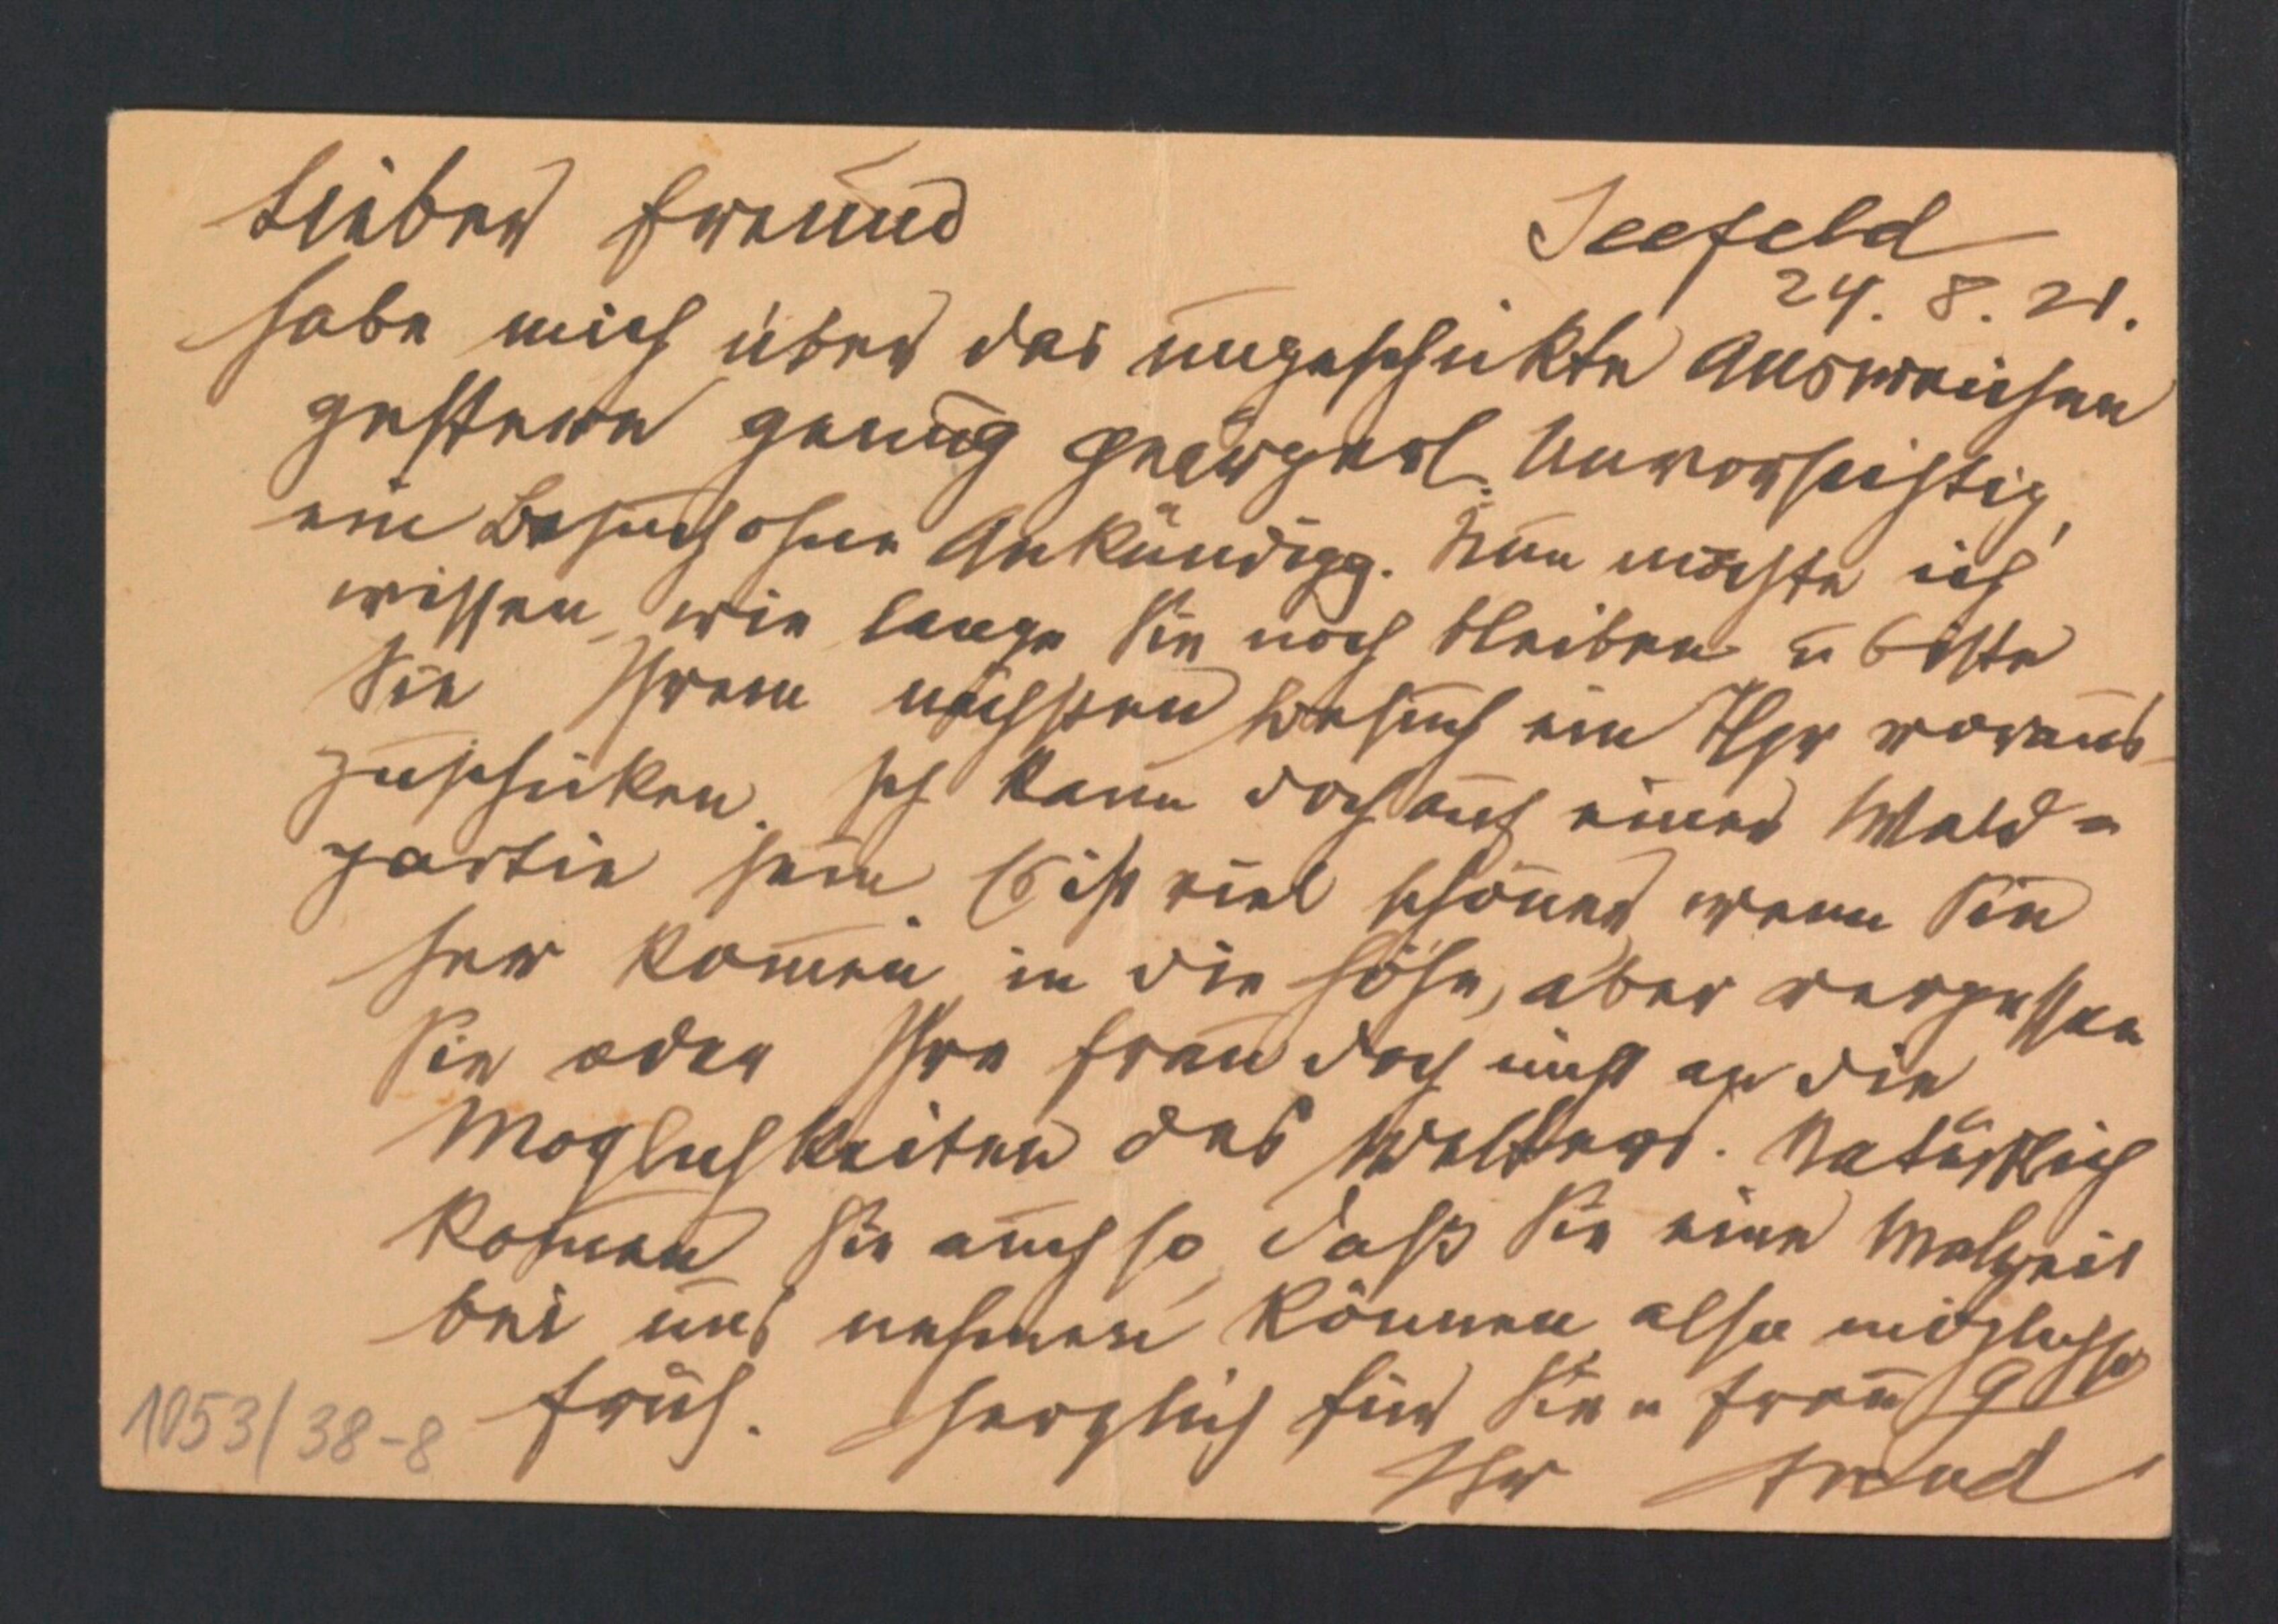 Lieber Freund
Seefeld
24. 8. 21.
habe mich über das ungeschikte Ausweichen
gestern genug geärgert. Unvorsichtig,
ein Besuch ohne Ankündigg. Nun möchte ich
wissen, wie lange Sie noch bleiben u bitte
Sie Ihrem nächsten Besuch ein Tlgr voraus-
zuschicken. Ich kann doch auf einer Wald-
partie sein. Es ist viel schöner wenn Sie
her kom̄en in die Höhe, aber vergessen
Sie oder Ihre Frau doch nicht an die
Moglichkeiten des Wetters. Natürlich
kommen Sie auch so, daß Sie eine Malzeit
bei uns nehmen können also möglichst
früh. Herzlich für Sie u Frau G
Ihr
1053/38-8